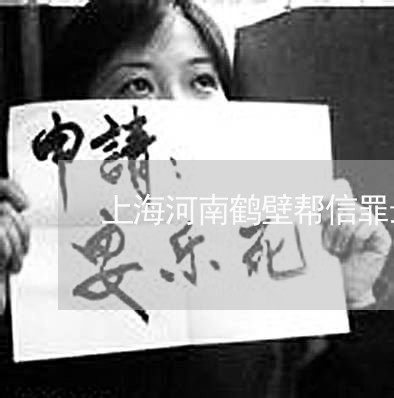 申請：
上海河南鹤壁帮信罪
乐死